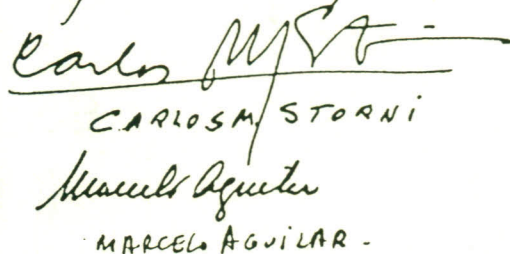 Carlos M Storni
CARLOS M. STORNi
Marcelo Aguilar
MARCELO AGUiLAR.